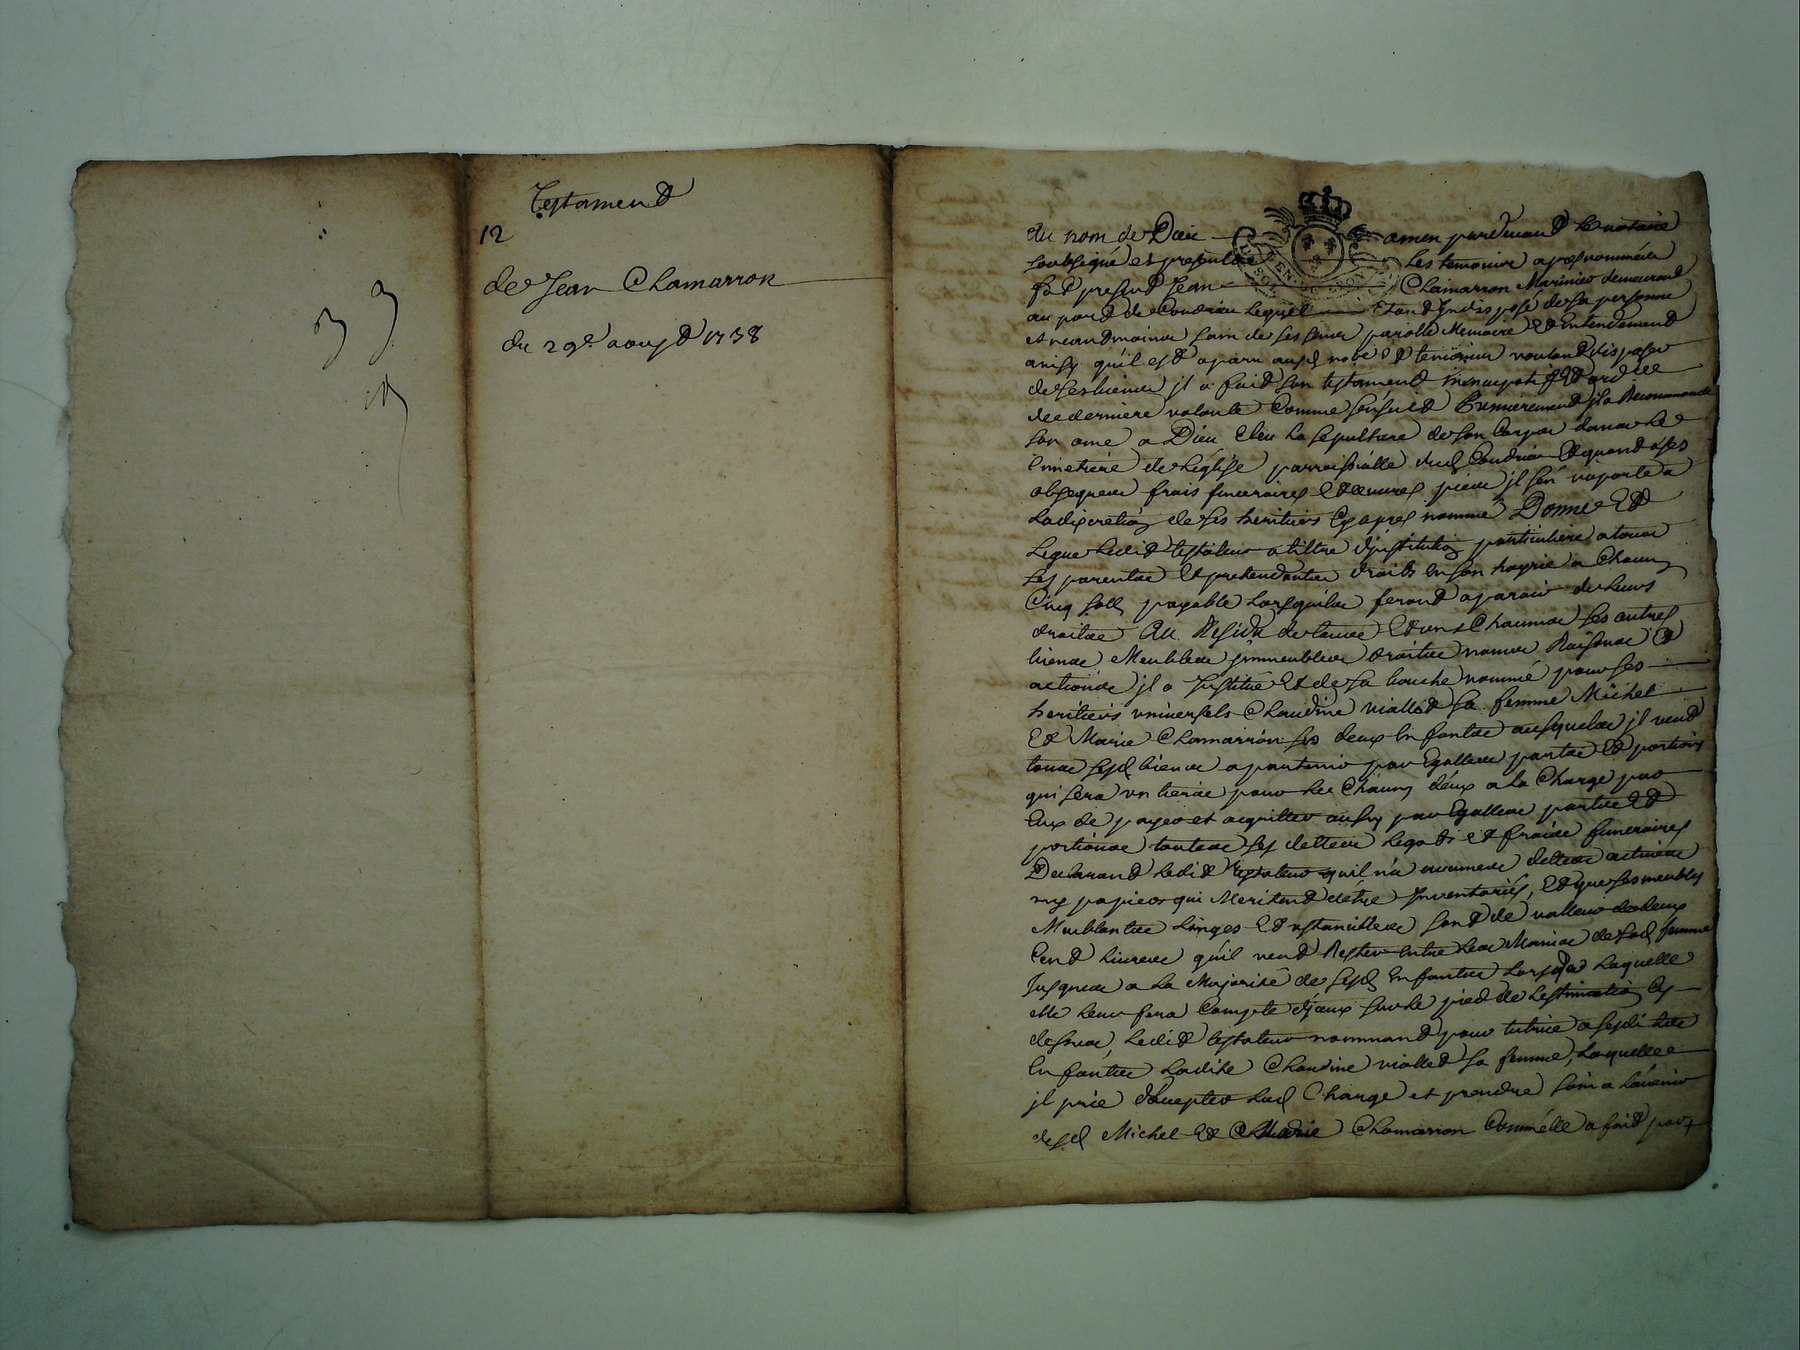 Testament
12
de Jean Chamarron
du 29e aoust 1738
du nom de Dieu amen pardevant le notaire
soubsigné et presentz les temoins apres nommés
fut present Jean Chamarron Marinier demeurant
au port de Condrieu lequel Etant Indisposé de sa personne
et neantmoins sain de ses sens parolle Memoire Et Entendement
ainsy qu'il est aparu ausd nore Et temoins voulant disposer
de ses biens il a fait son testament nuncupatif Et ordce
de derniere volonté Comme sensuit Premierement il a Recommandé
son ame a Dieu Elu la sepulture de son Corps dans le
Cimetiere de leglise parroissialle dud Condrieu Et quand a ses
obseques frais funeraires Et oeuvres pies il s'en raporte a
la discretion de ses heritiers Cy apres nommé Donne Et
Legue ledit testateur a tiltre d'institution particuliere a tous
Les parents Et pretendants droits en son hoyrie a Chacun
Cinq sols payable lorsquils feront aparoir de leurs
droits Au Residu de tous Et uns Chacuns ses autres
biens Meubles immeubles droits noms Raisons Et
actions il a Institué Et de sa bouche nommé pour ses
heritiers universels Claudine viallet sa femme Michel
Et Marie Chamarron ses deux Enfants ausquels il veut
tous sesd biens apartenir par Egalles parts Et portions
qui sera un tiers pour le Chacun d'eux a la Charge par
Eux de payer et aquitter aussy par Egalles parts Et
portions toutes ses dettes legats et fraix funeraires
Declarant ledit testateur quil n'a aucunes dettes actives
ny papiers qui Meritent d'être Inventoriés, Et que ses meubles
Meublants Linges Et ustancilles sont de valleur de deux
Cent livres qu'il veut Rester Entre les Mains de sad femme
Jusques a la Majorité de sesd Enfants lors de laquelle
elle leur fera Compte d'jceux sur le pied de lestimation Cy
dessus, ledit testateur nommant pour tutrice a sesdits
Enfants ladite Claudine viallet sa femme, laquelle
il prie d'accepter lad Charge et prendre soin a l'avenir
desd Michel Et Marie Chamarron Comme elle a fait par